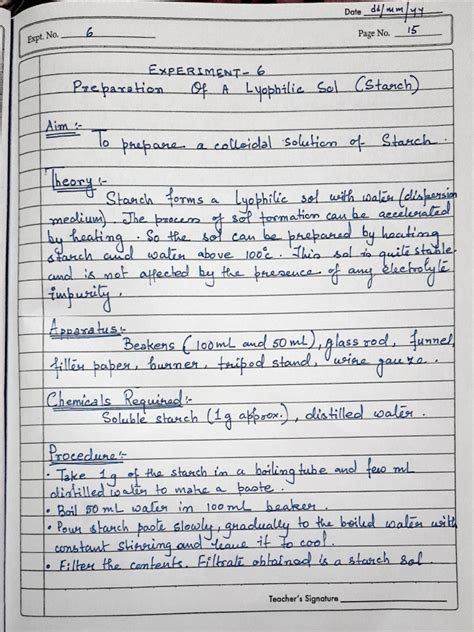 Date dd/mm/yy
Expt. No. 6 Page No. 15
EXPERIMENT-6
Preparation Of A Lyophilic Sol (Starch)
Aim :-
To prepare a colloidal solution of Starch.
Theory :-
Starch forms a Lyophilic sol with water (dispersion
medium). The process of sol formation can be accelerated
by heating. So the sol can be prepared by heating
starch and water above 100°c. This sol is quite stable
and is not affected by the presence of any electrolyte
impurity.
Apparatus:-
Beakers (100mL and 50mL), glass rod, funnel,
filter paper, burner, tripod stand, wire gauze.
Chemicals Required:-
Soluble starch (1g approx.), distilled water.
Procedure:-
• Take 1g of the starch in a boiling tube and few mL
distilled water to make a paste.
• Boil 50 mL water in 100mL beaker.
• Pour starch paste slowly, gradually to the boiled water with
constant stirring and leave it to cool.
• Filter the contents. Filtrate obtained is a starch sol.
Teacher's Signature